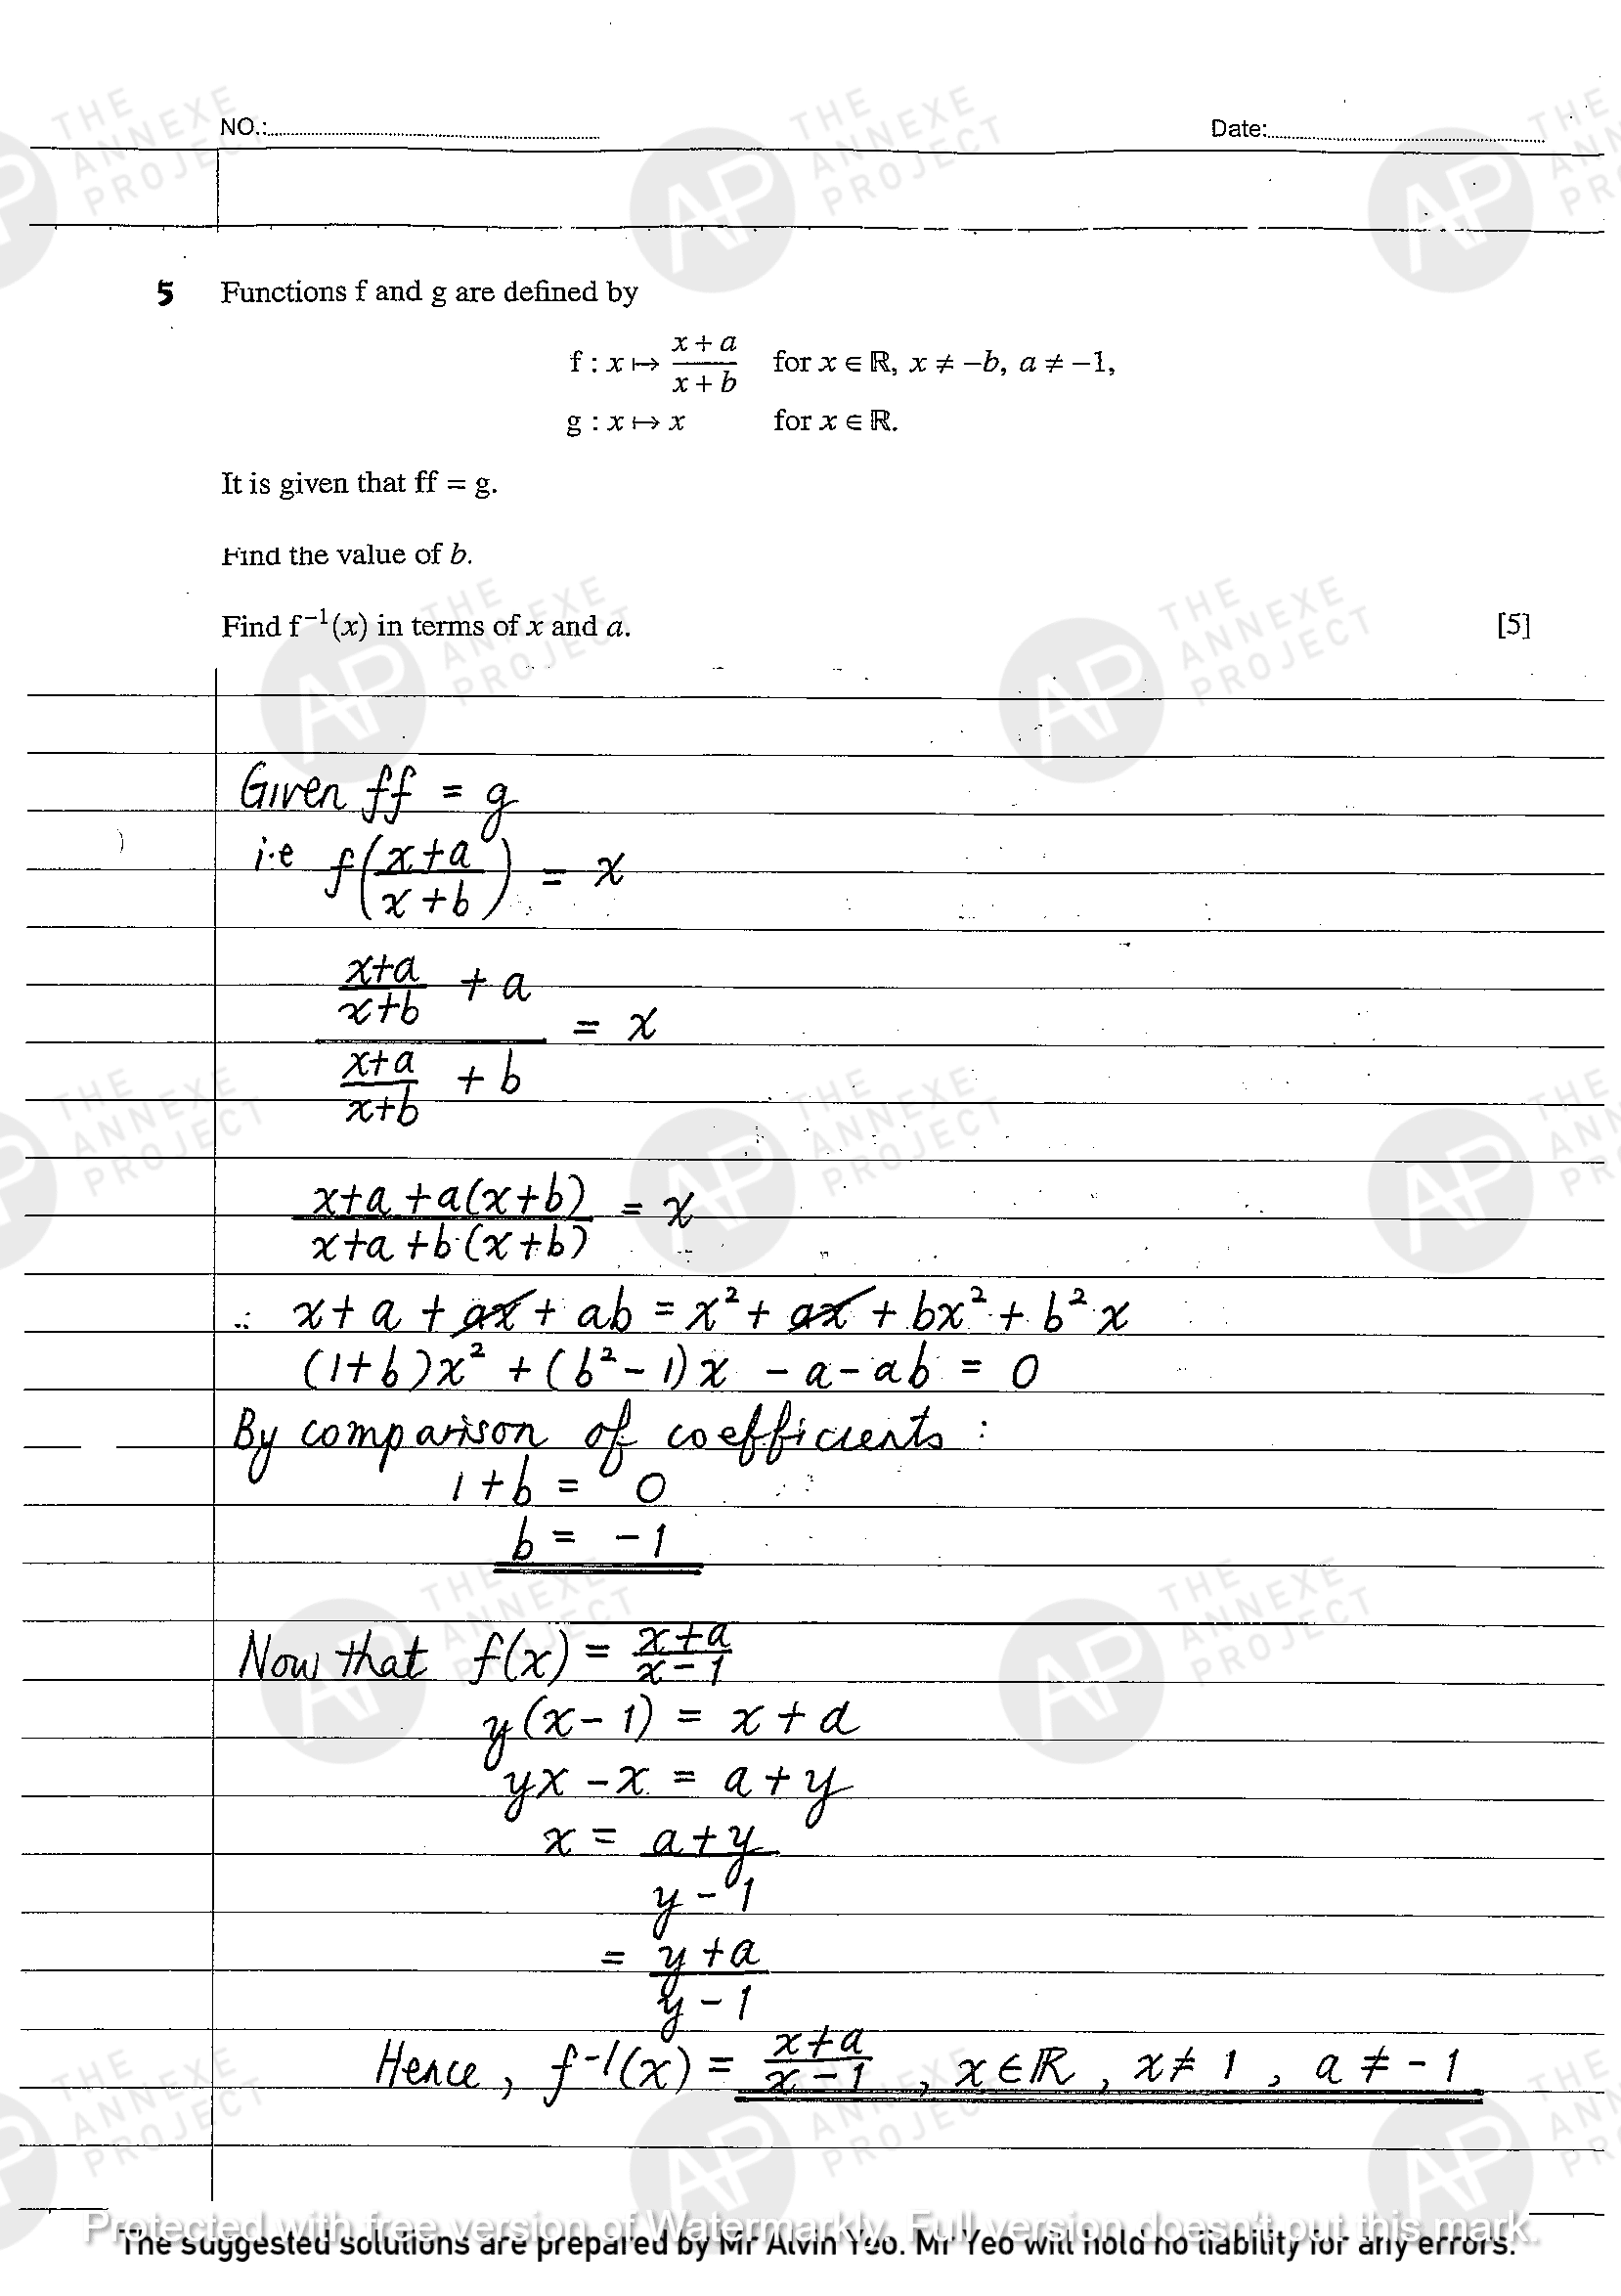 NO.:
Date:
5 Functions f and g are defined by
f : x ↦ (x + a)/(x + b) for x ∈ ℝ, x ≠ −b, a ≠ −1,
g : x ↦ x for x ∈ ℝ.
It is given that ff = g.
Find the value of b.
Find f⁻¹(x) in terms of x and a. [5]
Given ff = g
i.e f((x+a)/(x+b)) = x
((x+a)/(x+b) + a)/((x+a)/(x+b) + b) = x
(x+a+a(x+b))/(x+a+b(x+b)) = x
∴ x + a + ax + ab = x² + ax + bx² + b²x
(1+b)x² + (b²−1)x − a − ab = 0
By comparison of coefficients :
1 + b = 0
b = −1
Now that f(x) = (x+a)/(x−1)
y(x−1) = x + a
yx − x = a + y
x = (a+y)/(y−1)
= (y+a)/(y−1)
Hence, f⁻¹(x) = (x+a)/(x−1), x ∈ ℝ, x ≠ 1, a ≠ −1
THE ANNEXE PROJECT
AP
Protected with free version of Watermarkly. Full version doesn't put this mark.
The suggested solutions are prepared by Mr Alvin Yeo. Mr Yeo will hold no liability for any errors.